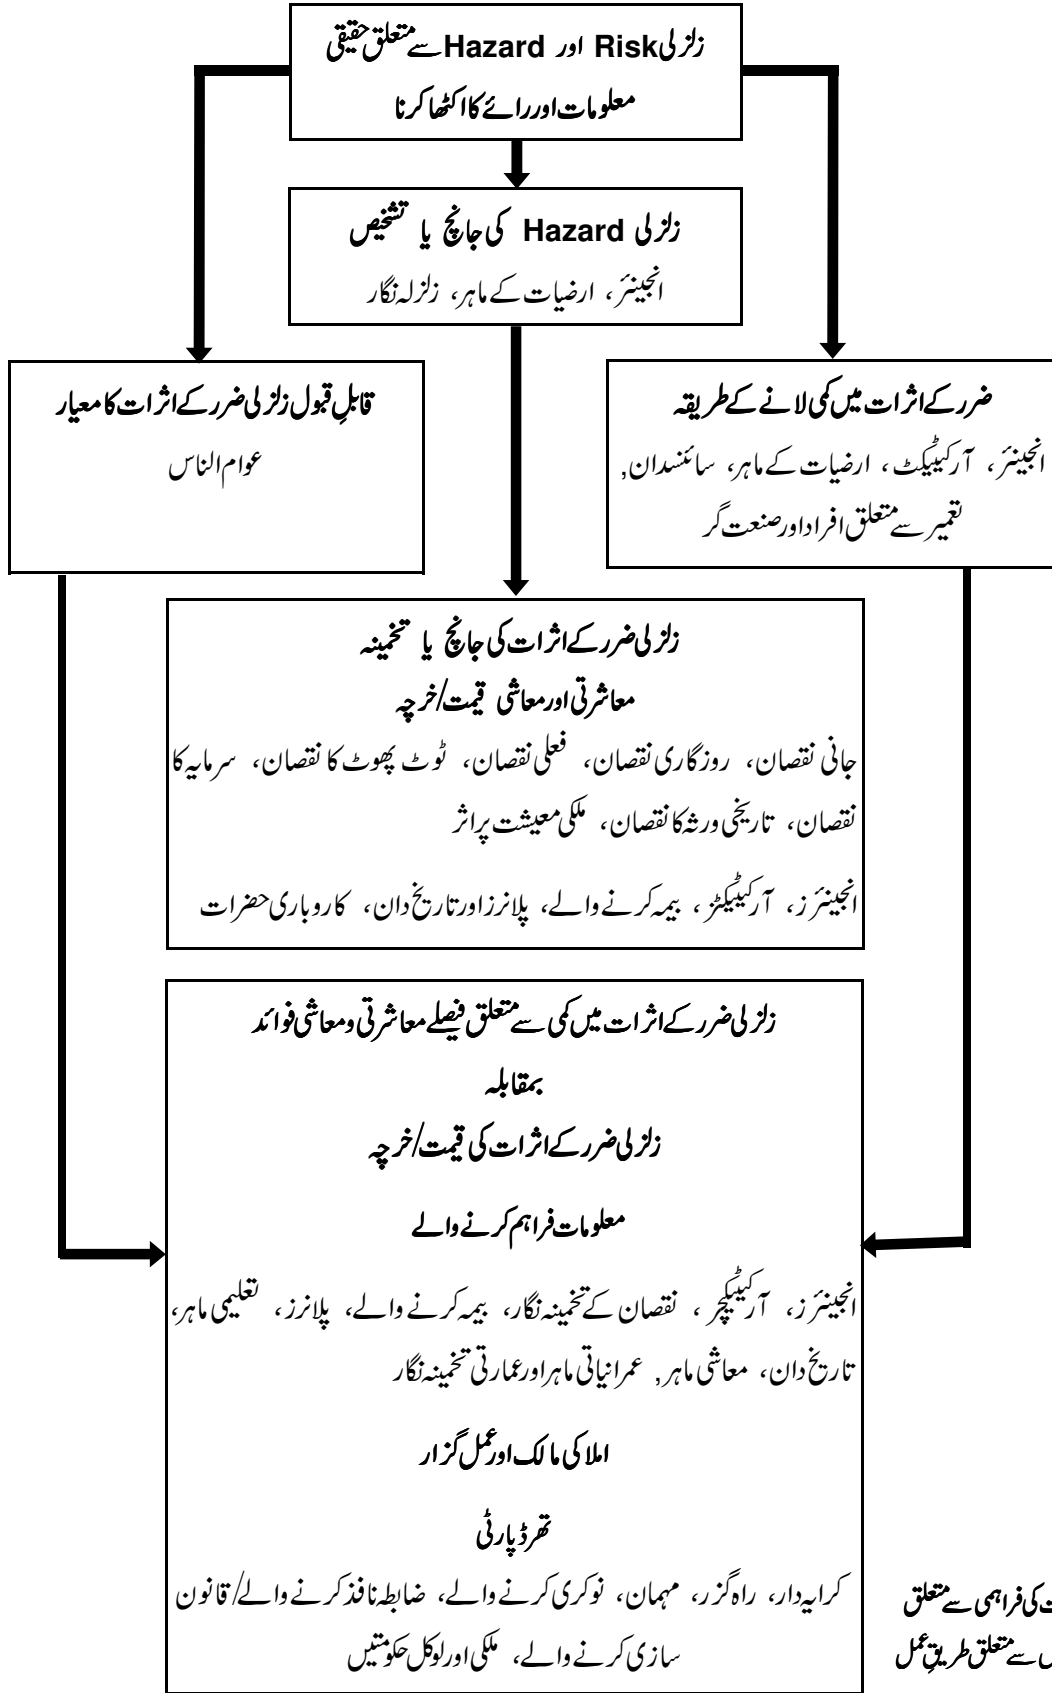 زلزلی Risk اور Hazard سے متعلق حقیقی
معلومات اور رائے کا اکٹھا کرنا
زلزلی Hazard کی جانچ یا تشخیص
انجینئر، ارضیات کے ماہر، زلزلہ نگار
ضرر کے اثرات میں کمی لانے کے طریقہ
انجینئر، آرکیٹیکٹ، ارضیات کے ماہر، سائنسدان,
تعمیر سے متعلق افراد اور صنعت گر
قابلِ قبول زلزلی ضرر کے اثرات کا معیار
عوام الناس
زلزلی ضرر کے اثرات کی جانچ یا تخمینہ
معاشرتی اور معاشی قیمت/خرچہ
جانی نقصان، روزگاری نقصان، فعلی نقصان، ٹوٹ پھوٹ کا نقصان، سرمایہ کا
نقصان، تاریخی ورثہ کا نقصان، ملکی معیشت پر اثر
انجینئرز، آرکیٹیکٹز، بیمہ کرنے والے، پلانرز اور تاریخ دان، کاروباری حضرات
زلزلی ضرر کے اثرات میں کمی سے متعلق فیصلے معاشرتی و معاشی فوائد
بمقابلہ
زلزلی ضرر کے اثرات کی قیمت/خرچہ
معلومات فراہم کرنے والے
انجینئرز، آرکیٹیکچر، نقصان کے تخمینہ نگار، بیمہ کرنے والے، پلانرز، تعلیمی ماہر،
تاریخ دان، معاشی ماہر, عمرانیاتی ماہر اور عمارتی تخمینہ نگار
املاکی مالک اور عمل گزار
تھرڈ پارٹی
کرایہ دار، راہ گزر، مہمان، نوکری کرنے والے، ضابطہ نافذ کرنے والے/قانون
سازی کرنے والے، ملکی اور لوکل حکومتیں
کی فراہمی سے متعلق
سے متعلق طریقِ عمل